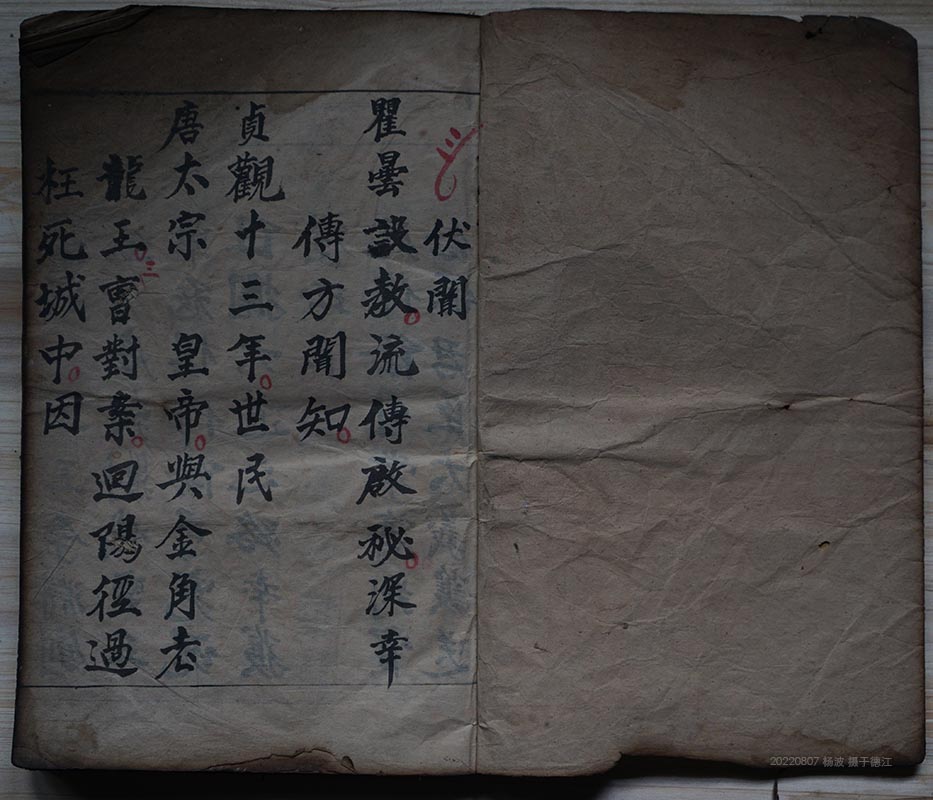 伏聞
瞿曇設教流傳啟秘深幸
傳方聞知
貞觀十三年世民
唐太宗 皇帝與金角老
龍王曺對案迴陽徑過
枉死城中因
三
20220807 杨波 摄于德江